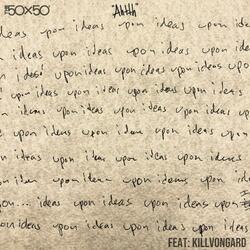 50X50 Ahhh
upon ideas upon ideas upon idea
ideas upon ideas upon ideas upon
ideas upon ideas upon ideas upon ideas
upon ideas upon ideas upon ideas upon
ideas upon ideas upon ideas upon ideas
upon ideas upon ideas upon ideas
ideas upon ideas upon ideas upon
ideas upon ideas upon ideas upon
upon ideas upon ideas upon ideas
... ideas upon ideas upon ideas upon
upon ideas upon ideas upon ideas
FEAT: KILLVONGARD